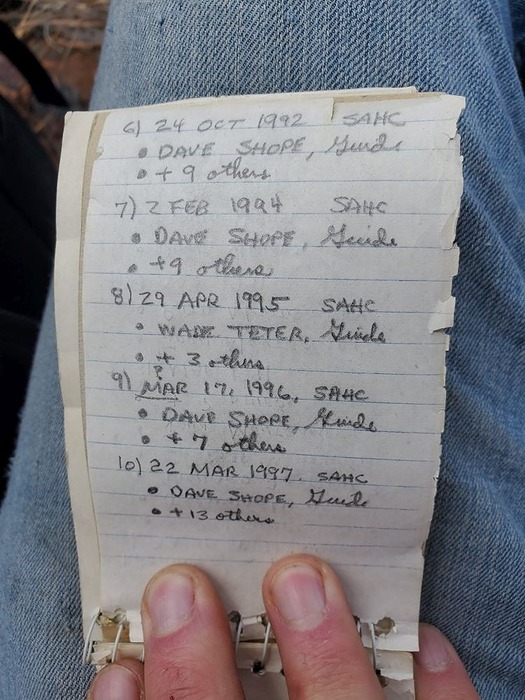 6) 24 OCT 1992 SAHC
• DAVE SHOPE, Guide
• + 9 others
7) 2 FEB 1994 SAHC
• DAVE SHOPE, Guide
• +9 others
8) 29 APR 1995 SAHC
• WADE TETER, Guide
• + 3 others
?
9) MAR 17, 1996, SAHC
• DAVE SHOPE, Guide
• + 7 others
10) 22 MAR 1997. SAHC
• DAVE SHOPE, Guide
• + 13 others